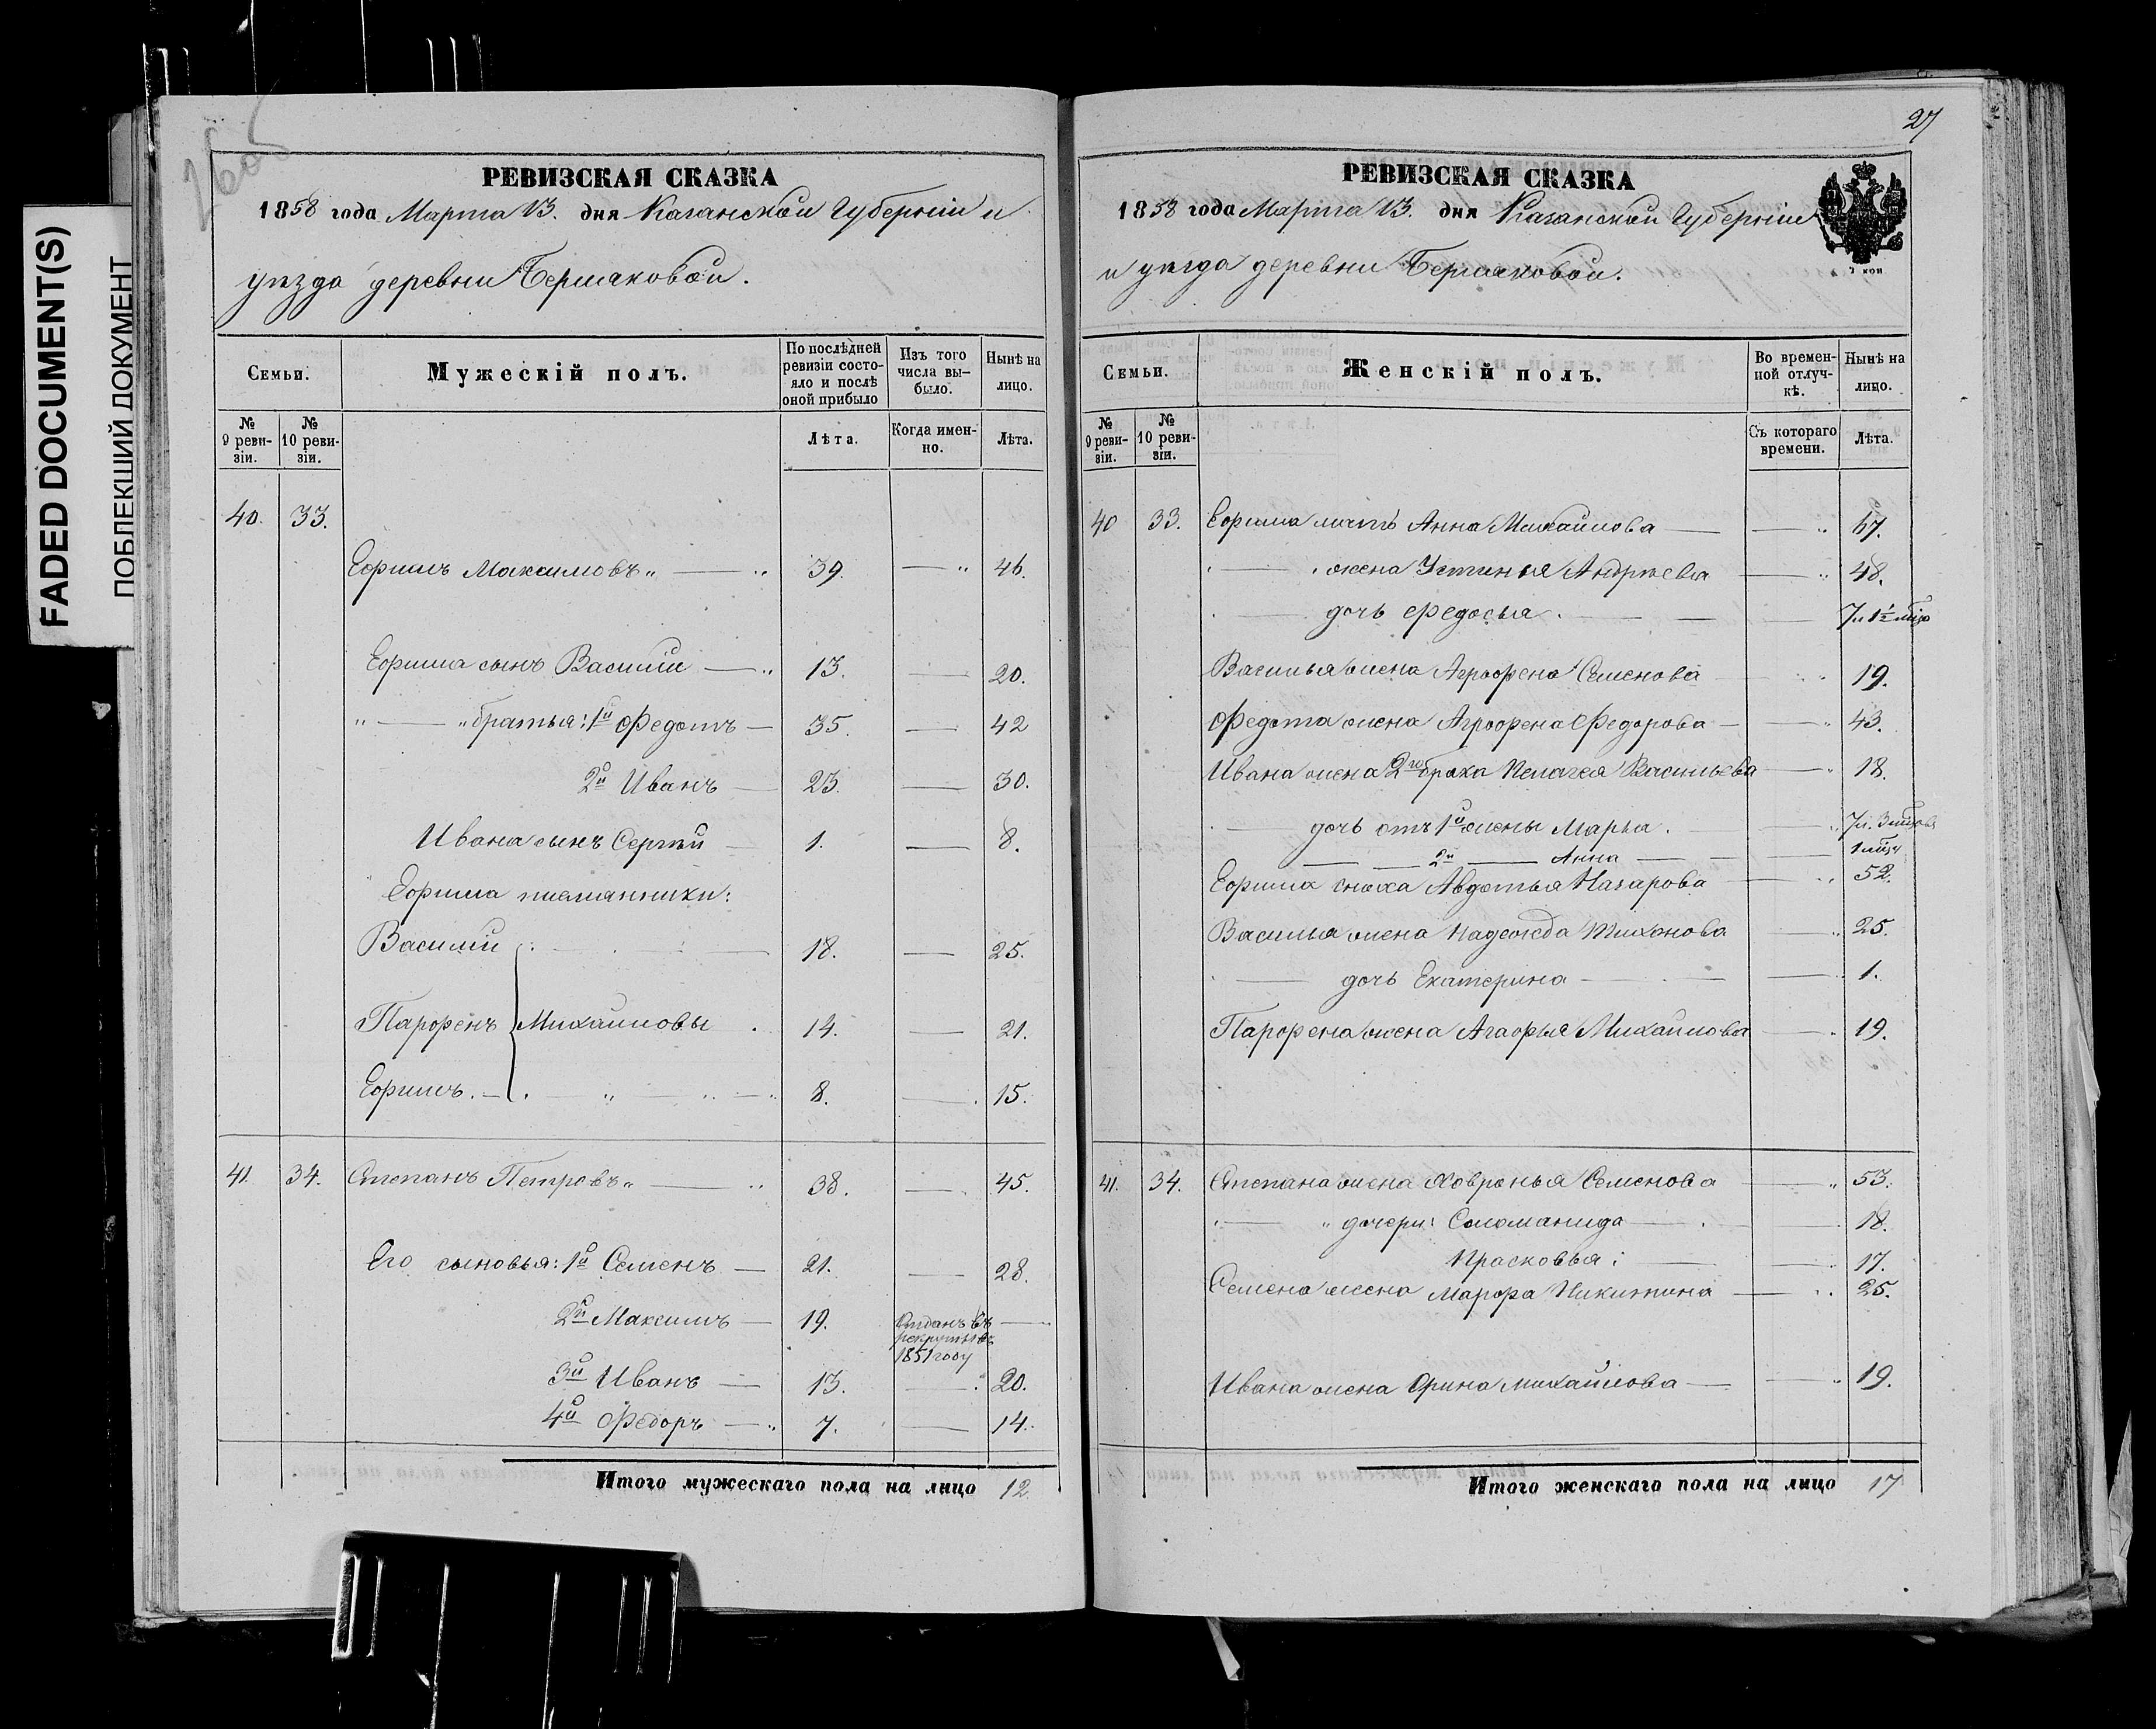 FADED DOCUMENT(S)
ПОБЛЕКШИЙ ДОКУМЕНТ
РЕВИЗСКАЯ СКАЗКА
1858 года Марта 13. дня Казанской Губерніи и
уѣзда деревни
Семьи.
Мужескій полъ.
По послѣдней ревизіи состояло и послѣ оной прибыло
Изъ того числа выбыло.
Нынѣ на лицо.
№ 9 ревизіи.
№ 10 ревизіи.
Лѣта.
Когда именно.
Лѣта.
40. 33.
Ефимъ Максимовъ 39. 46.
Ефима сынъ Василій 13. 20.
" братья: 1й Федотъ 35. 42
2й Иванъ 23. 30.
Ивана сынъ Сергѣй 1. 8.
Ефима племянники:
Василій 18. 25.
Парфенъ Михайловы 14. 21.
Ефимъ. 8. 15.
41. 34. Степанъ Петровъ 38. 45.
Его сыновья: 1й Семенъ 21. 28.
2й Максимъ 19. Отданъ въ рекруты въ 1851 году
3й Иванъ 13. 20.
4й Федоръ 7. 14.
Итого мужескаго пола на лицо 12.
27
РЕВИЗСКАЯ СКАЗКА
1858 года Марта 13. дня Казанской Губерніи
и уѣзда деревни
Семьи.
Женскій полъ.
Во временной отлучкѣ.
Нынѣ на лицо.
№ 9 ревизіи.
№ 10 ревизіи.
Съ котораго времени.
Лѣта.
40 33. Ефима мать Анна Михайлова 67.
жена Устинья Андреева 48.
дочь Федосья 7 л. 1½ мѣс
Василья жена Агрофена Семенова 19.
Федота жена Агрофена Федорова 43.
Ивана жена 2го брака Пелагея Васильева 18.
дочь отъ 1й жены Марья. 7 л. 3 мѣс
2й Анна 1 мѣс
Ефима сноха Авдотья Назарова 52.
Василья жена Надежда Тихонова 25.
дочь Екатерина 1.
Парфена жена Агафья Михайлова 19.
41. 34. Степана жена Ховронья Семенова 53.
" дочери: Соломанида 18.
Прасковья: 17.
Семена жена Марфа Никитина 25.
Ивана жена Орина Михайлова 19.
Итого женскаго пола на лицо 17